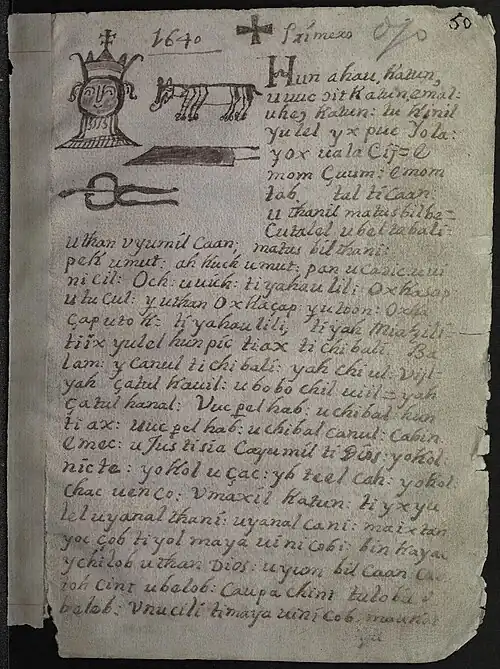 1640 Primero 50
Hun ahau, Katun,
u uuc Katun
uheɔ Katun: tu Kinil
yulel yx puc Yola:
yox uala Cij=e
mom Çuum: emom
tab tal ti Caan:
u thanil matus bil be=
Cutalel u bel tabati=
uthan vyumil Caan; matus bil thani:
pek umut: ah Kuch umut:
ni cil: Och: u uich: ti yahau lili: Ox Kaçap
u tucul: yuthan Ox Kaçap: yutoon: Ox Ka
Çap utoK= ti yahau lili; ti yah
ti ix yulel hun pic ti ax ti chibali. Ba
lam: y Canul ti chibali: yah chi ul:
yah Çatul Kauil: u bobo chil uiil= yah
Çatul hanal: Vuc pel hab: u chibal hun
ti ax: uuc pel hab: u chibal canul: Cabin
emec: u Justisia Cayumil ti Dios: yokol
nicte: yokol u çac: yb teel cah: yokol
chac uen co: Vmaxil Katun: ti yx yu
lel uyanal thani: uyanal cani: ma ix tan
yoc Çob ti yol maya uinicobi: bin Kayac
ychilob uthan Dios: uyum bil Caan
toh cint ubelob: Caupa chint tuloba
belob: Vnucili ti maya uinicob,